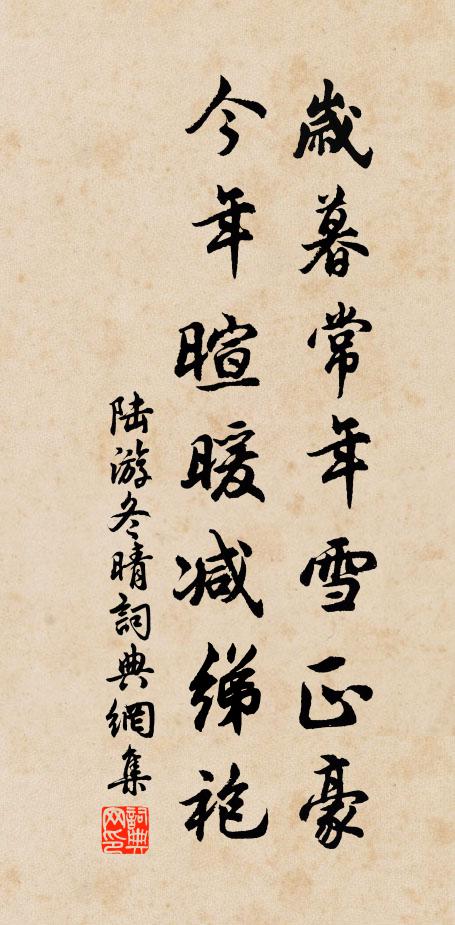 歲暮常年雪正豪
今年暄暖减綈袍
陆游冬晴詞典網集
詞典网印